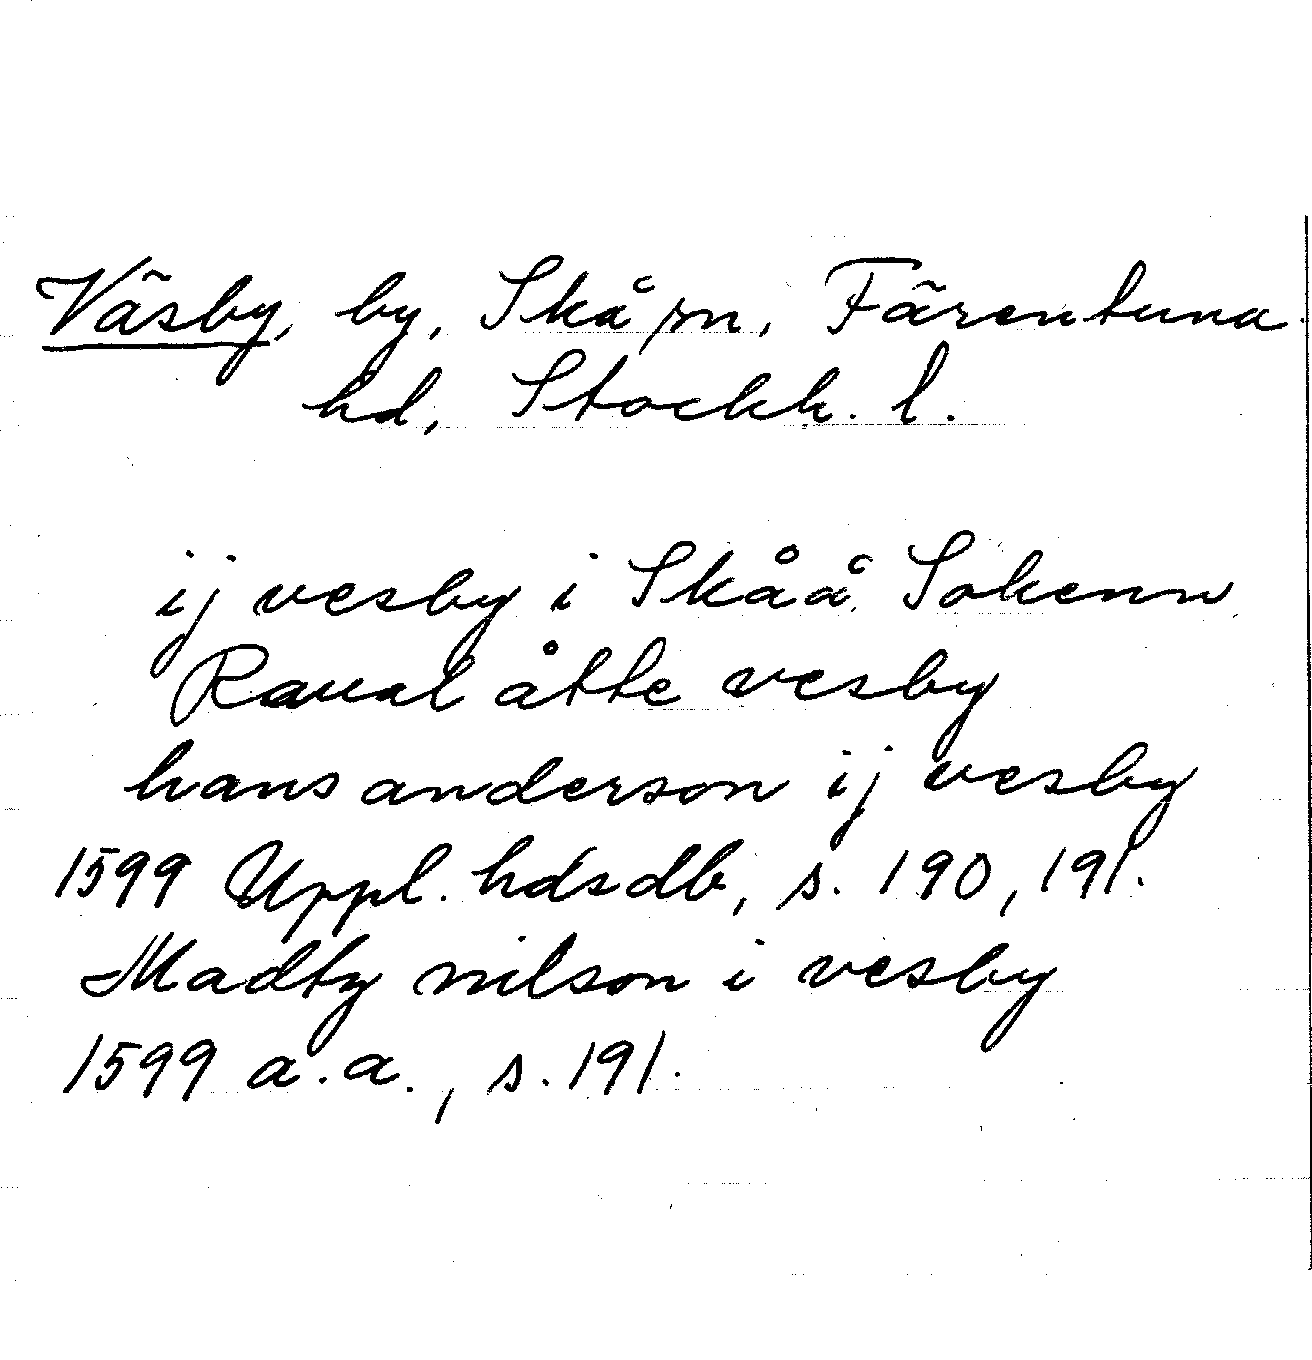 Väsby, by, Skå sn, Färentuna
hd, Stockh. l.
ij vesby i Skåå Sokenn
Raual åtte vesby
hans anderson ij vesby
1599 Uppl. hdsdb, s. 190, 191.
Madty nilson i vesby
1599 a.a., s. 191.